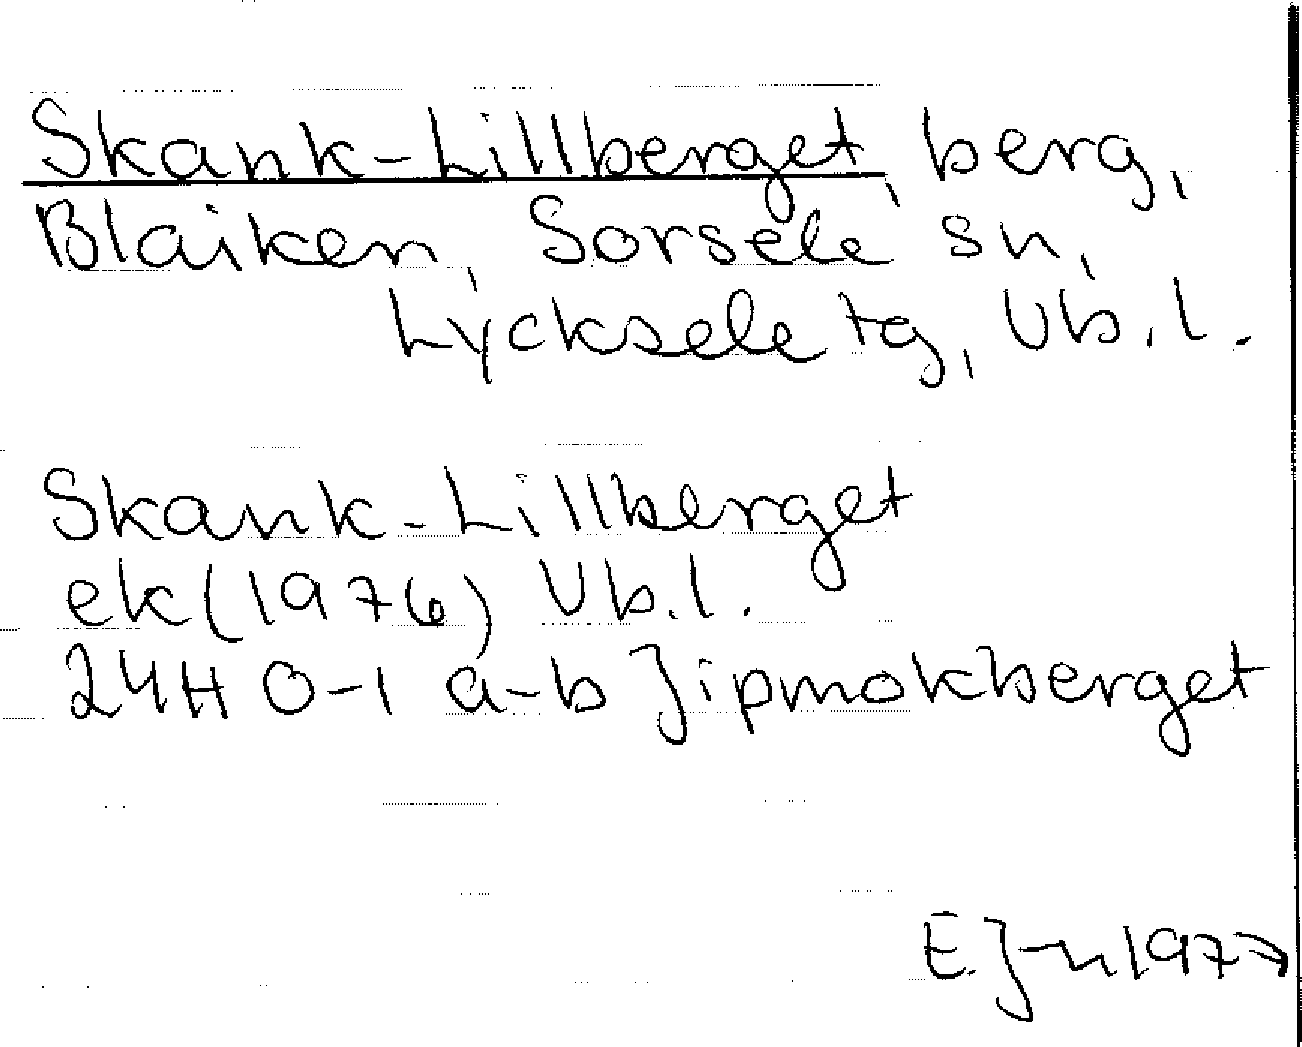 Skank-Lillberget, berg,
Blaiken, Sorsele sn,
Lycksele tg, Vb.l.
Skank-Lillberget
ek (1976) Vb.l.
24H 0-1 a-b Jipmokberget
E. J-n 1977